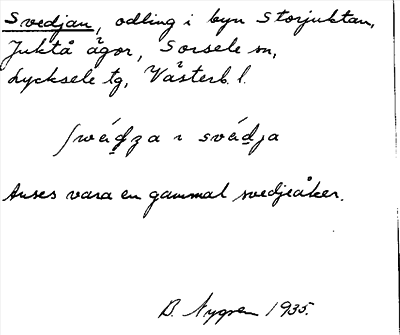 Svedjan, odling i byn Storjuktan,
Juktå ägor, Sorsele sn,
Lycksele tg, Västerb. l.
svédja
Anses vara en gammal svedjeåker.
B. Nygren 1935.